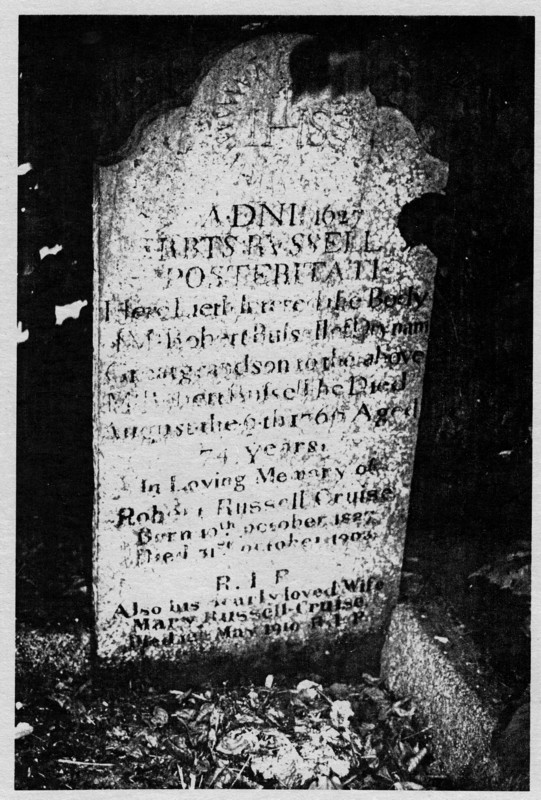 IHS
A·DNI 1627
RBTS RVSSELL
POSTERITATI
Here Lieth Interred the Body
of Mr Robert Russell of Drynam
Great grandson to the above
Mr Robert Russell he Died
August the 6th 1766 Aged
74 Years.
In Loving Memory of
Robert Russell Cruise
Born 10th October 1827
Died 31st October 1903
R. I. P
Also his dearly loved Wife
Mary Russell-Cruise
Died May 1910 R. I. P.